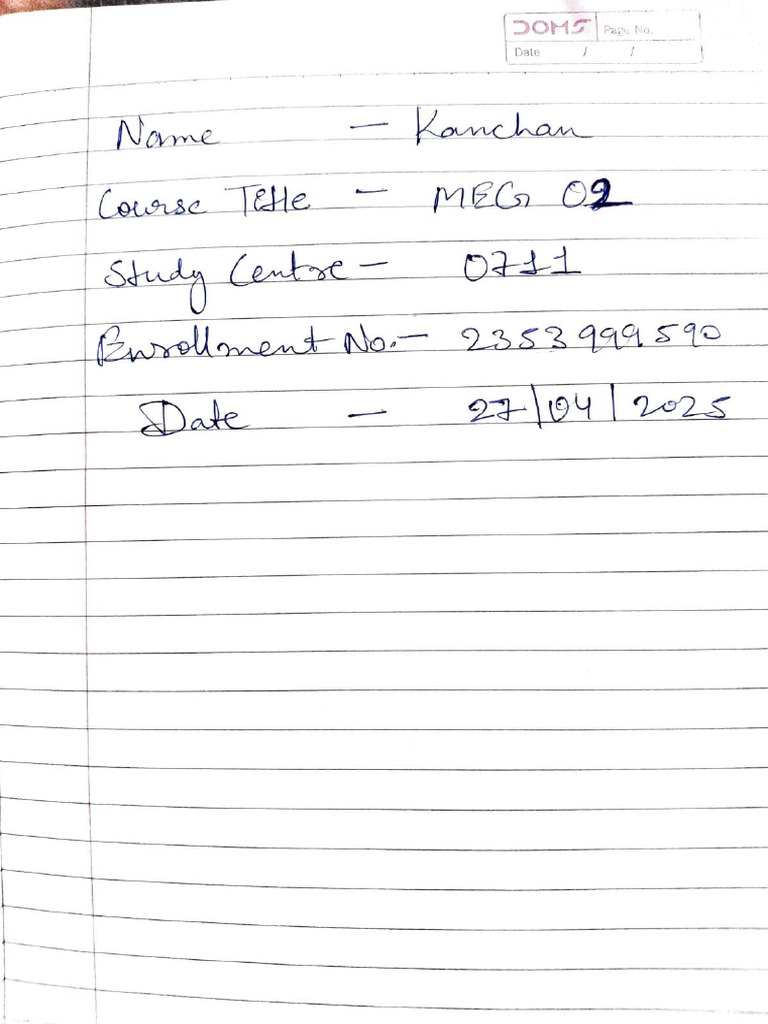 DOMS Page No.
Date / /
Name — Kanchan
Course Title — MEG 02
Study Centre — 0711
Enrollment No. — 2353999590
Date — 27/04/2025